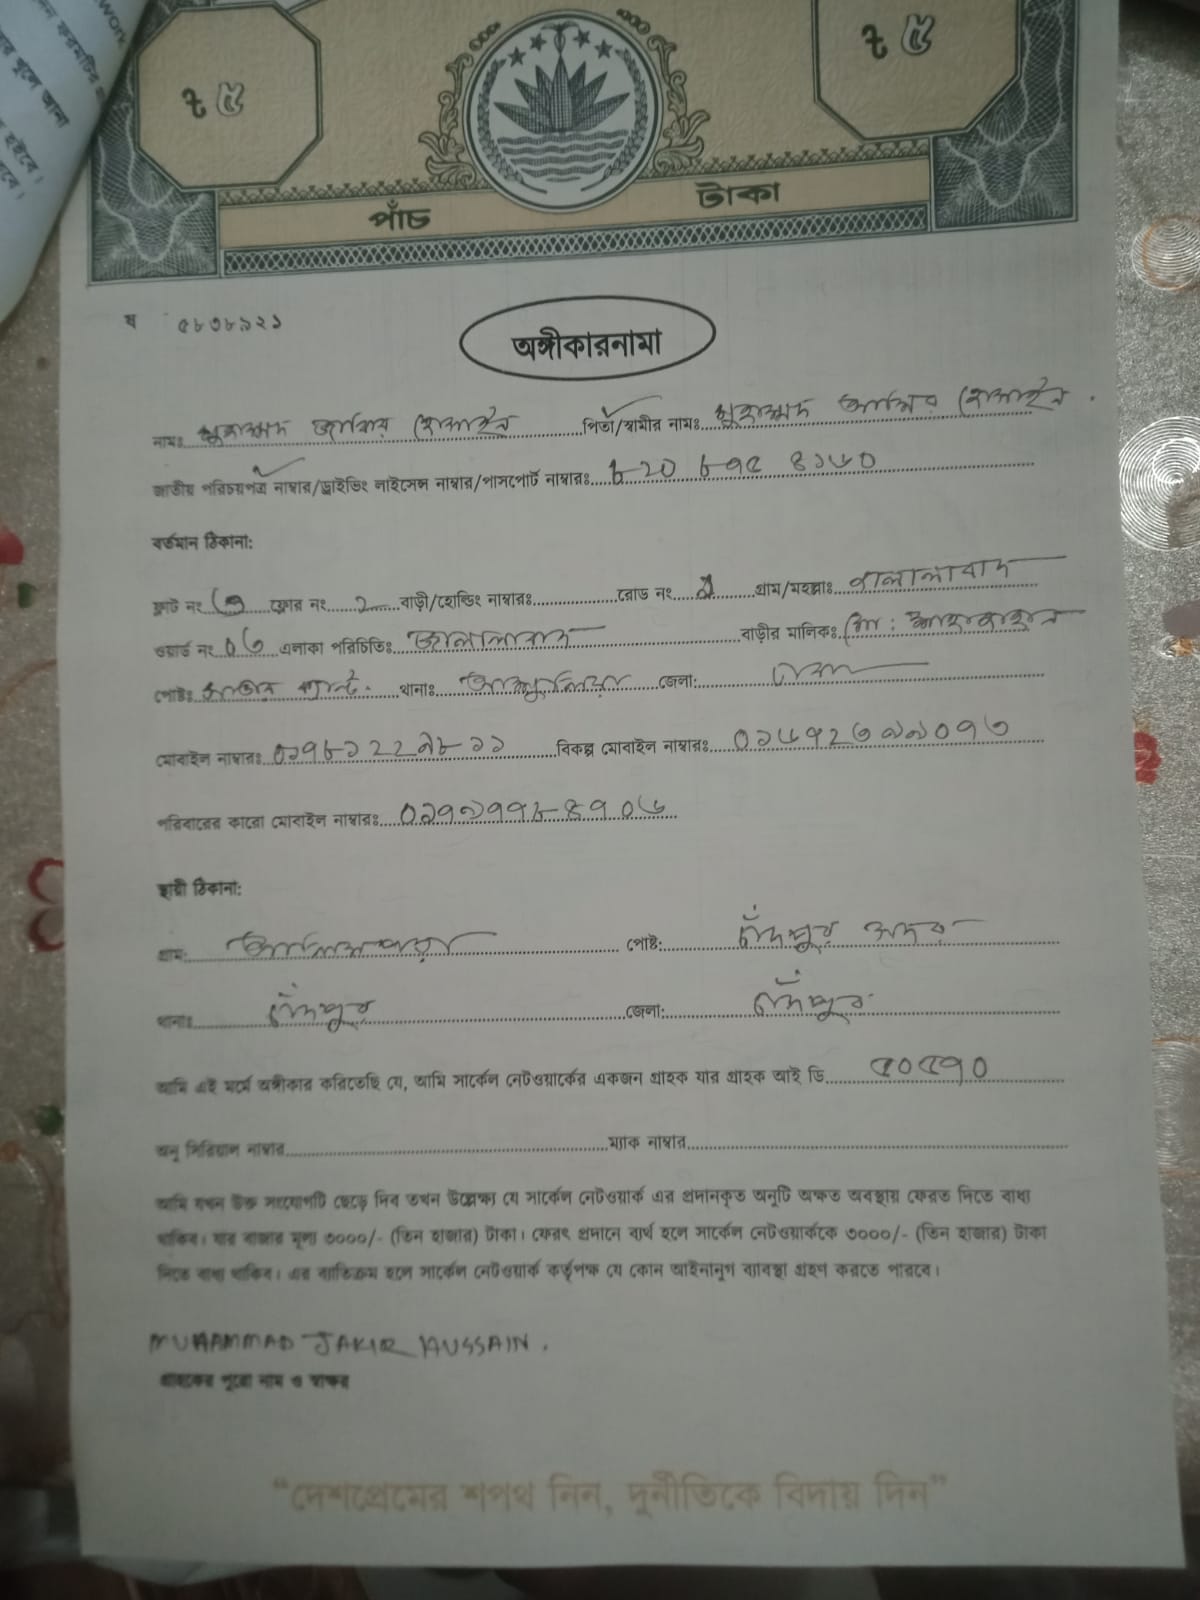 ৳ ৫
৳ ৫
পাঁচ টাকা
ষ ৫৮৩৮৯২১
অঙ্গীকারনামা
নামঃ মুহাম্মদ জাকির হোসাইন পিতা/স্বামীর নামঃ মুহাম্মদ আমির হোসাইন
জাতীয় পরিচয়পত্র নাম্বার/ড্রাইভিং লাইসেন্স নাম্বার/পাসপোর্ট নাম্বারঃ
বর্তমান ঠিকানা:
ফ্লাট নং ফ্লোর নং ২ বাড়ী/হোল্ডিং নাম্বারঃ রোড নং গ্রাম/মহল্লাঃ জালালাবাদ
ওয়ার্ড নং ০৬ এলাকা পরিচিতিঃ জালালাবাদ বাড়ীর মালিকঃ
পোষ্টঃ থানাঃ আশুলিয়া জেলা: ঢাকা
মোবাইল নাম্বারঃ বিকল্প মোবাইল নাম্বারঃ
পরিবারের কারো মোবাইল নাম্বারঃ
স্থায়ী ঠিকানা:
গ্রাম: পোষ্ট: চাঁদপুর সদর
থানাঃ চাঁদপুর জেলা: চাঁদপুর
আমি এই মর্মে অঙ্গীকার করিতেছি যে, আমি সার্কেল নেটওয়ার্কের একজন গ্রাহক যার গ্রাহক আই ডি ৫০৫৭০
অনু সিরিয়াল নাম্বার ম্যাক নাম্বার
আমি যখন উক্ত সংযোগটি ছেড়ে দিব তখন উল্লেখ্য যে সার্কেল নেটওয়ার্ক এর প্রদানকৃত অনুটি অক্ষত অবস্থায় ফেরত দিতে বাধ্য
থাকিব। যার বাজার মূল্য ৩০০০/- (তিন হাজার) টাকা। ফেরৎ প্রদানে ব্যর্থ হলে সার্কেল নেটওয়ার্ককে ৩০০০/- (তিন হাজার) টাকা
দিতে বাধ্য থাকিব। এর ব্যতিক্রম হলে সার্কেল নেটওয়ার্ক কর্তৃপক্ষ যে কোন আইনানুগ ব্যাবস্থা গ্রহণ করতে পারবে।
MUHAMMAD JAKIR HUSSAIN.
গ্রাহকের পুরো নাম ও স্বাক্ষর
“দেশপ্রেমের শপথ নিন, দুর্নীতিকে বিদায় দিন”